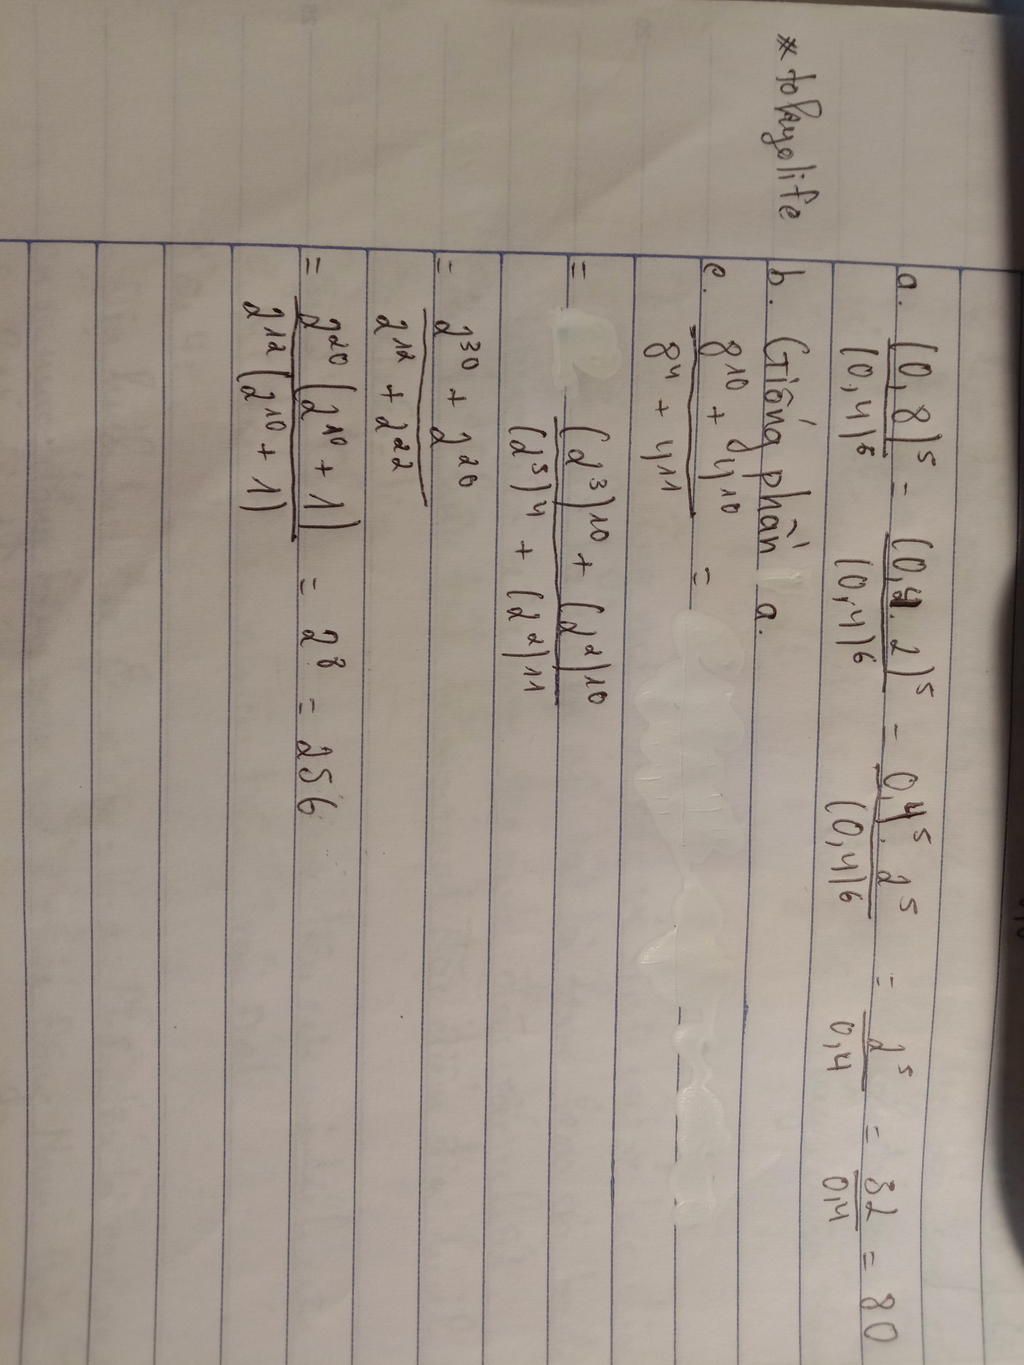 * tokuyolife
a. (0,8)⁵/(0,4)⁶ = (0,4.2)⁵/(0,4)⁶ = 0,4⁵.2⁵/(0,4)⁶ = 2⁵/0,4 = 32/0,4 = 80
b. Giống phần a.
c. 8¹⁰ + 4¹⁰/8⁴ + 4¹¹ =
= (2³)¹⁰ + (2²)¹⁰/(2³)⁴ + (2²)¹¹
= 2³⁰ + 2²⁰/2¹² + 2²²
= 2²⁰(2¹⁰ + 1)/2¹²(2¹⁰ + 1) = 2⁸ = 256